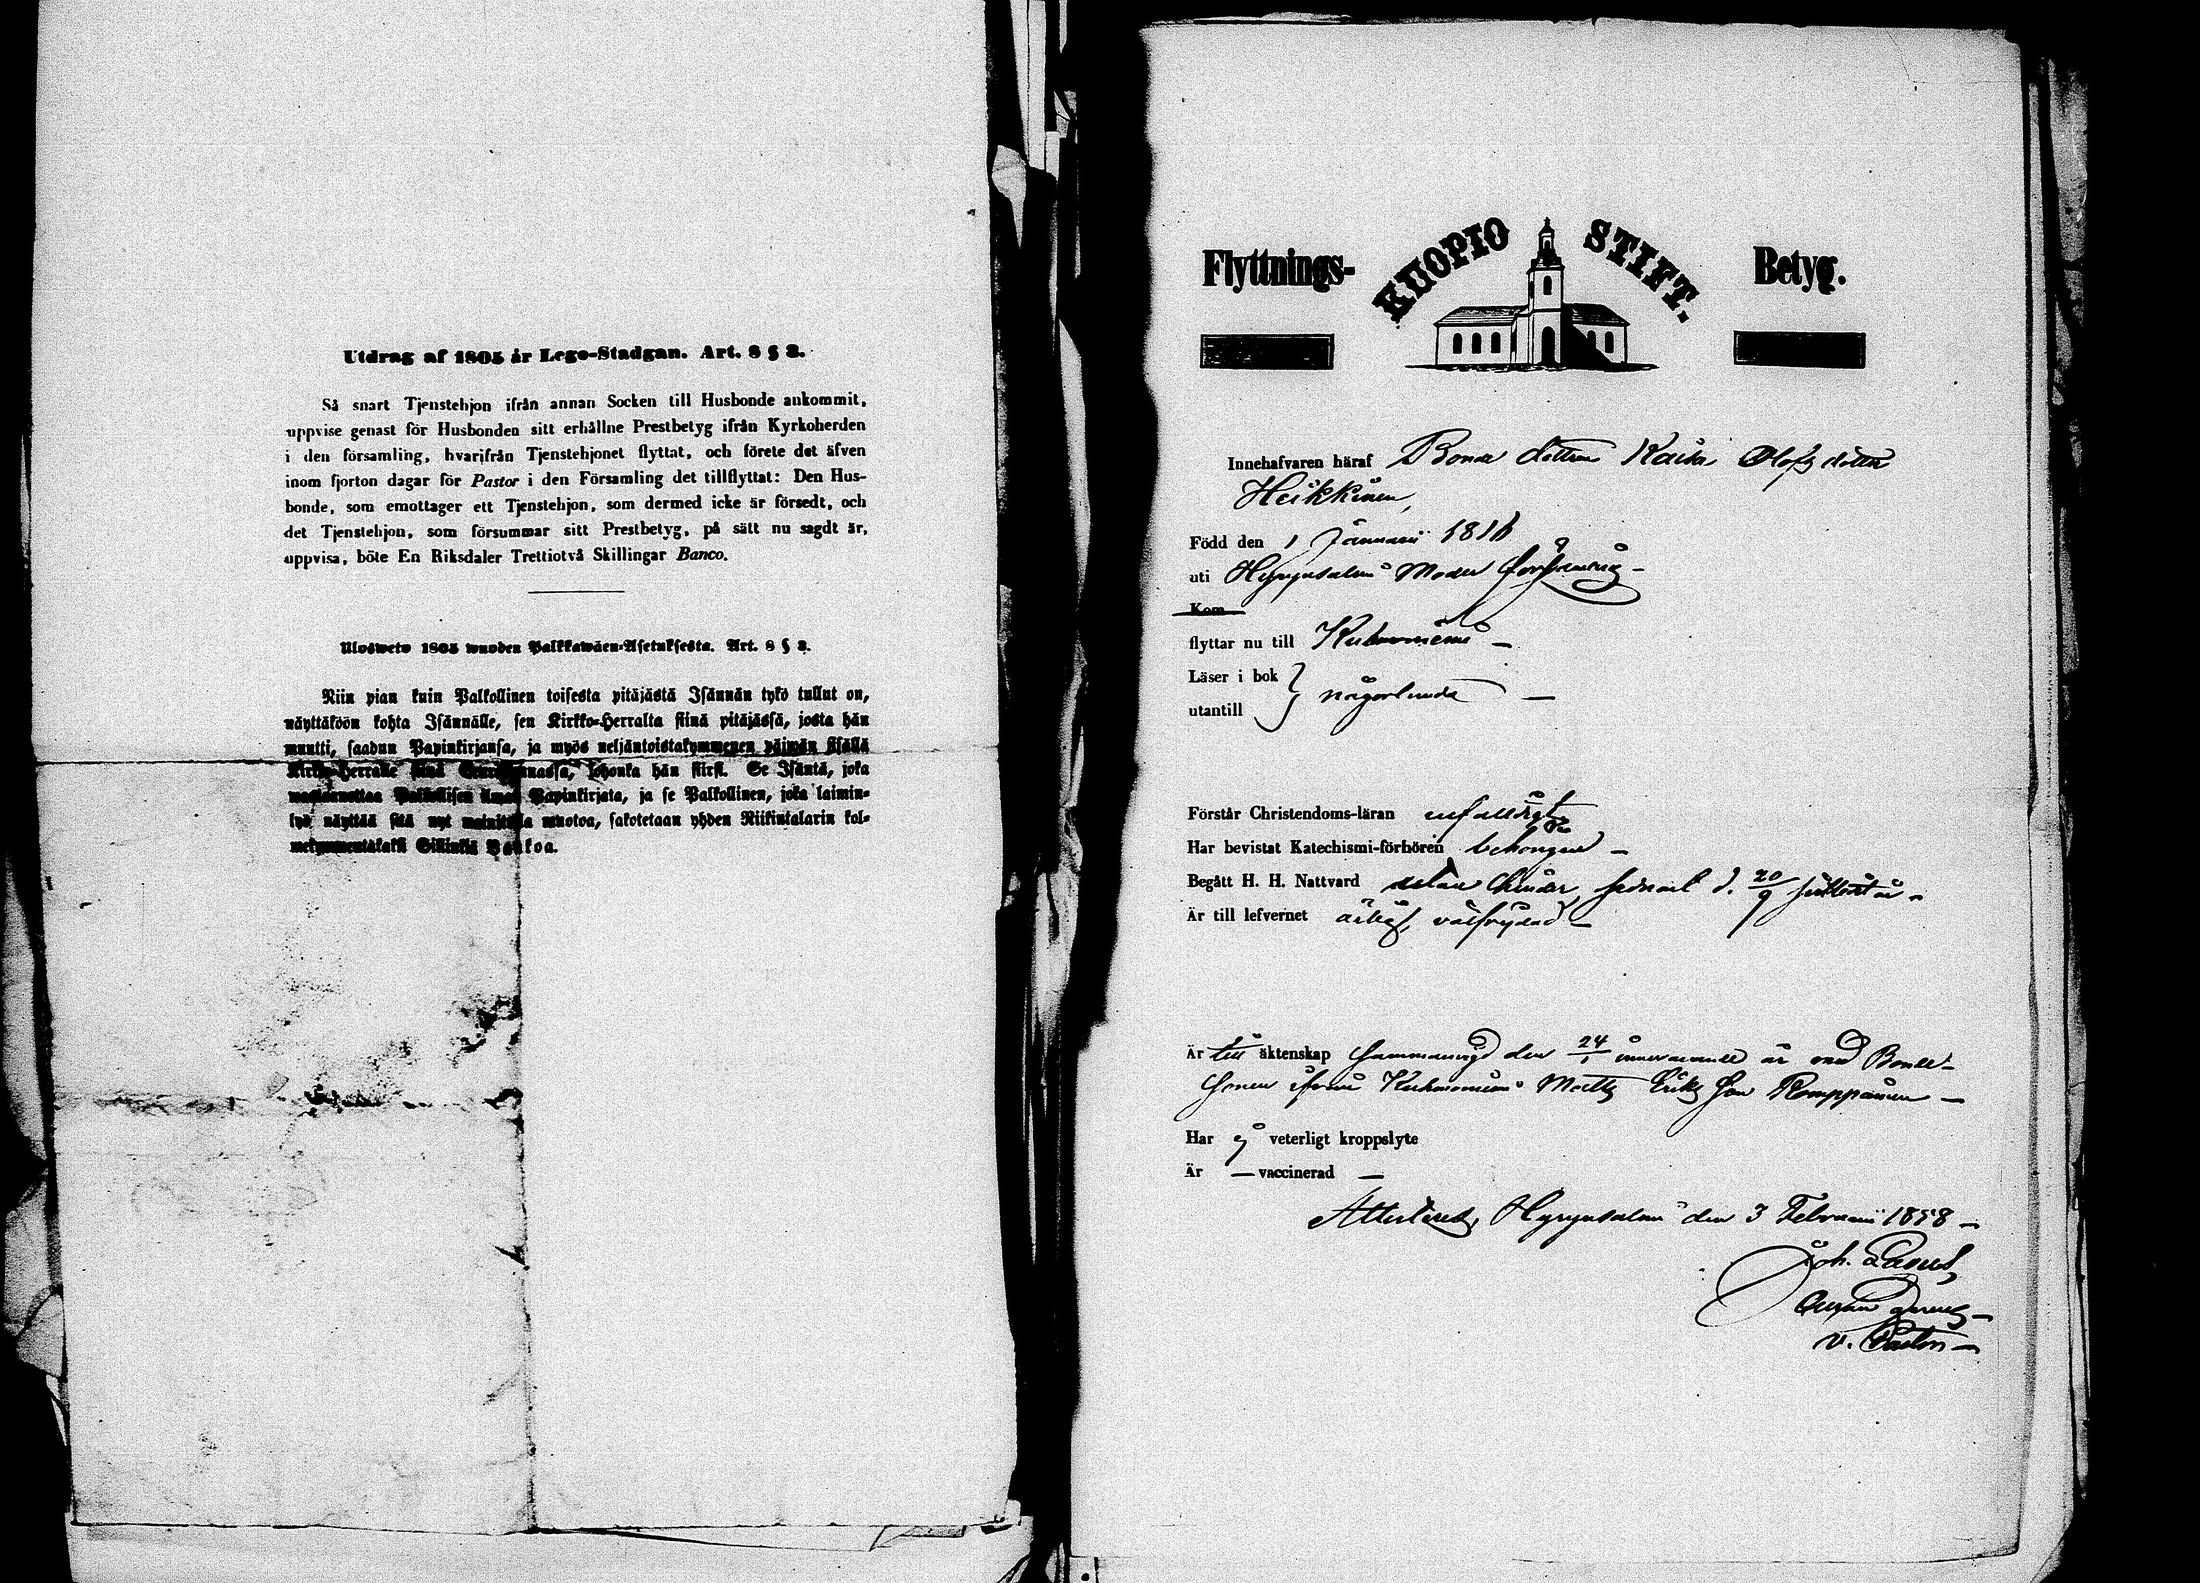 Utdrag af 1805 år Lego-Stadgan. Art. 8 § 2.
Så snart Tjenstehjon ifrån annan Socken till Husbonde ankommit,
uppvise genast för Husbonden sitt erhållne Prestbetyg ifrån Kyrkoherden
i den församling, hvarifrån Tjenstehjonet flyttat, och förete det äfven
inom fjorton dagar för Pastor i den Församling det tillflyttat: Den Hus-
bonde, som emottager ett Tjenstehjon, som dermed icke är försedt, och
det Tjenstehjon, som försummar sitt Prestbetyg, på sätt nu sagdt är,
uppvisa, böte En Riksdaler Trettiotvå Skillingar Banco.
Ulosweto 1805 wuoden Palkkawäen-Asetuksesta. Art. 8 § 2.
Niin pian kuin Palkollinen toisesta pitäjästä Isännän tykö tullut on,
näyttäköön kohta Isännälle, sen Kirkko-Herralta siinä pitäjässä, josta hän
muutti, saadun Papinkirjansa, ja myös neljäntoistakymmenen päiwän sisällä
Kirkko-Herralle siinä Seurakunnassa, johonka hän siirsi. Se Isäntä, joka
wastaanottaa Palkollisen ilman Papinkirjata, ja se Palkollinen, joka laimin-
lyö näyttää sitä nyt mainitulla muotoa, sakotetaan yhden Riikintalarin kol-
mekymmentäkaksi Killinkiä Bankoa.
Flyttnings- KUOPIO STIFT. Betyg.
Innehafvaren häraf Bonde dottren Kaisa Olofsdotter
Heikkinen,
Född den 1 Januarii 1816
uti Hyrynsalmi Moder församling –
Kom
flyttar nu till Kuhmoniemi –
Läser i bok
utantill } någorlunda –
Förstår Christendoms-läran enfaldigt
Har bevistat Katechismi-förhören behörigen –
Begått H. H. Nattvard utan hinder, sednast d. 20/9 sistledet år.
Är till lefvernet ärlig, välfrejdad –
Är till äktenskap sammanvigd den 24/1 innevarande år med Bonde-
sonen ifrån Kuhmoniemi Matts Eriks son Romppainen –
Har ej veterligt kroppslyte
Är – vaccinerad –
Attesteras, Hyrynsalmi den 3 Februarii 1858 –
Joh.
v. Pastor –